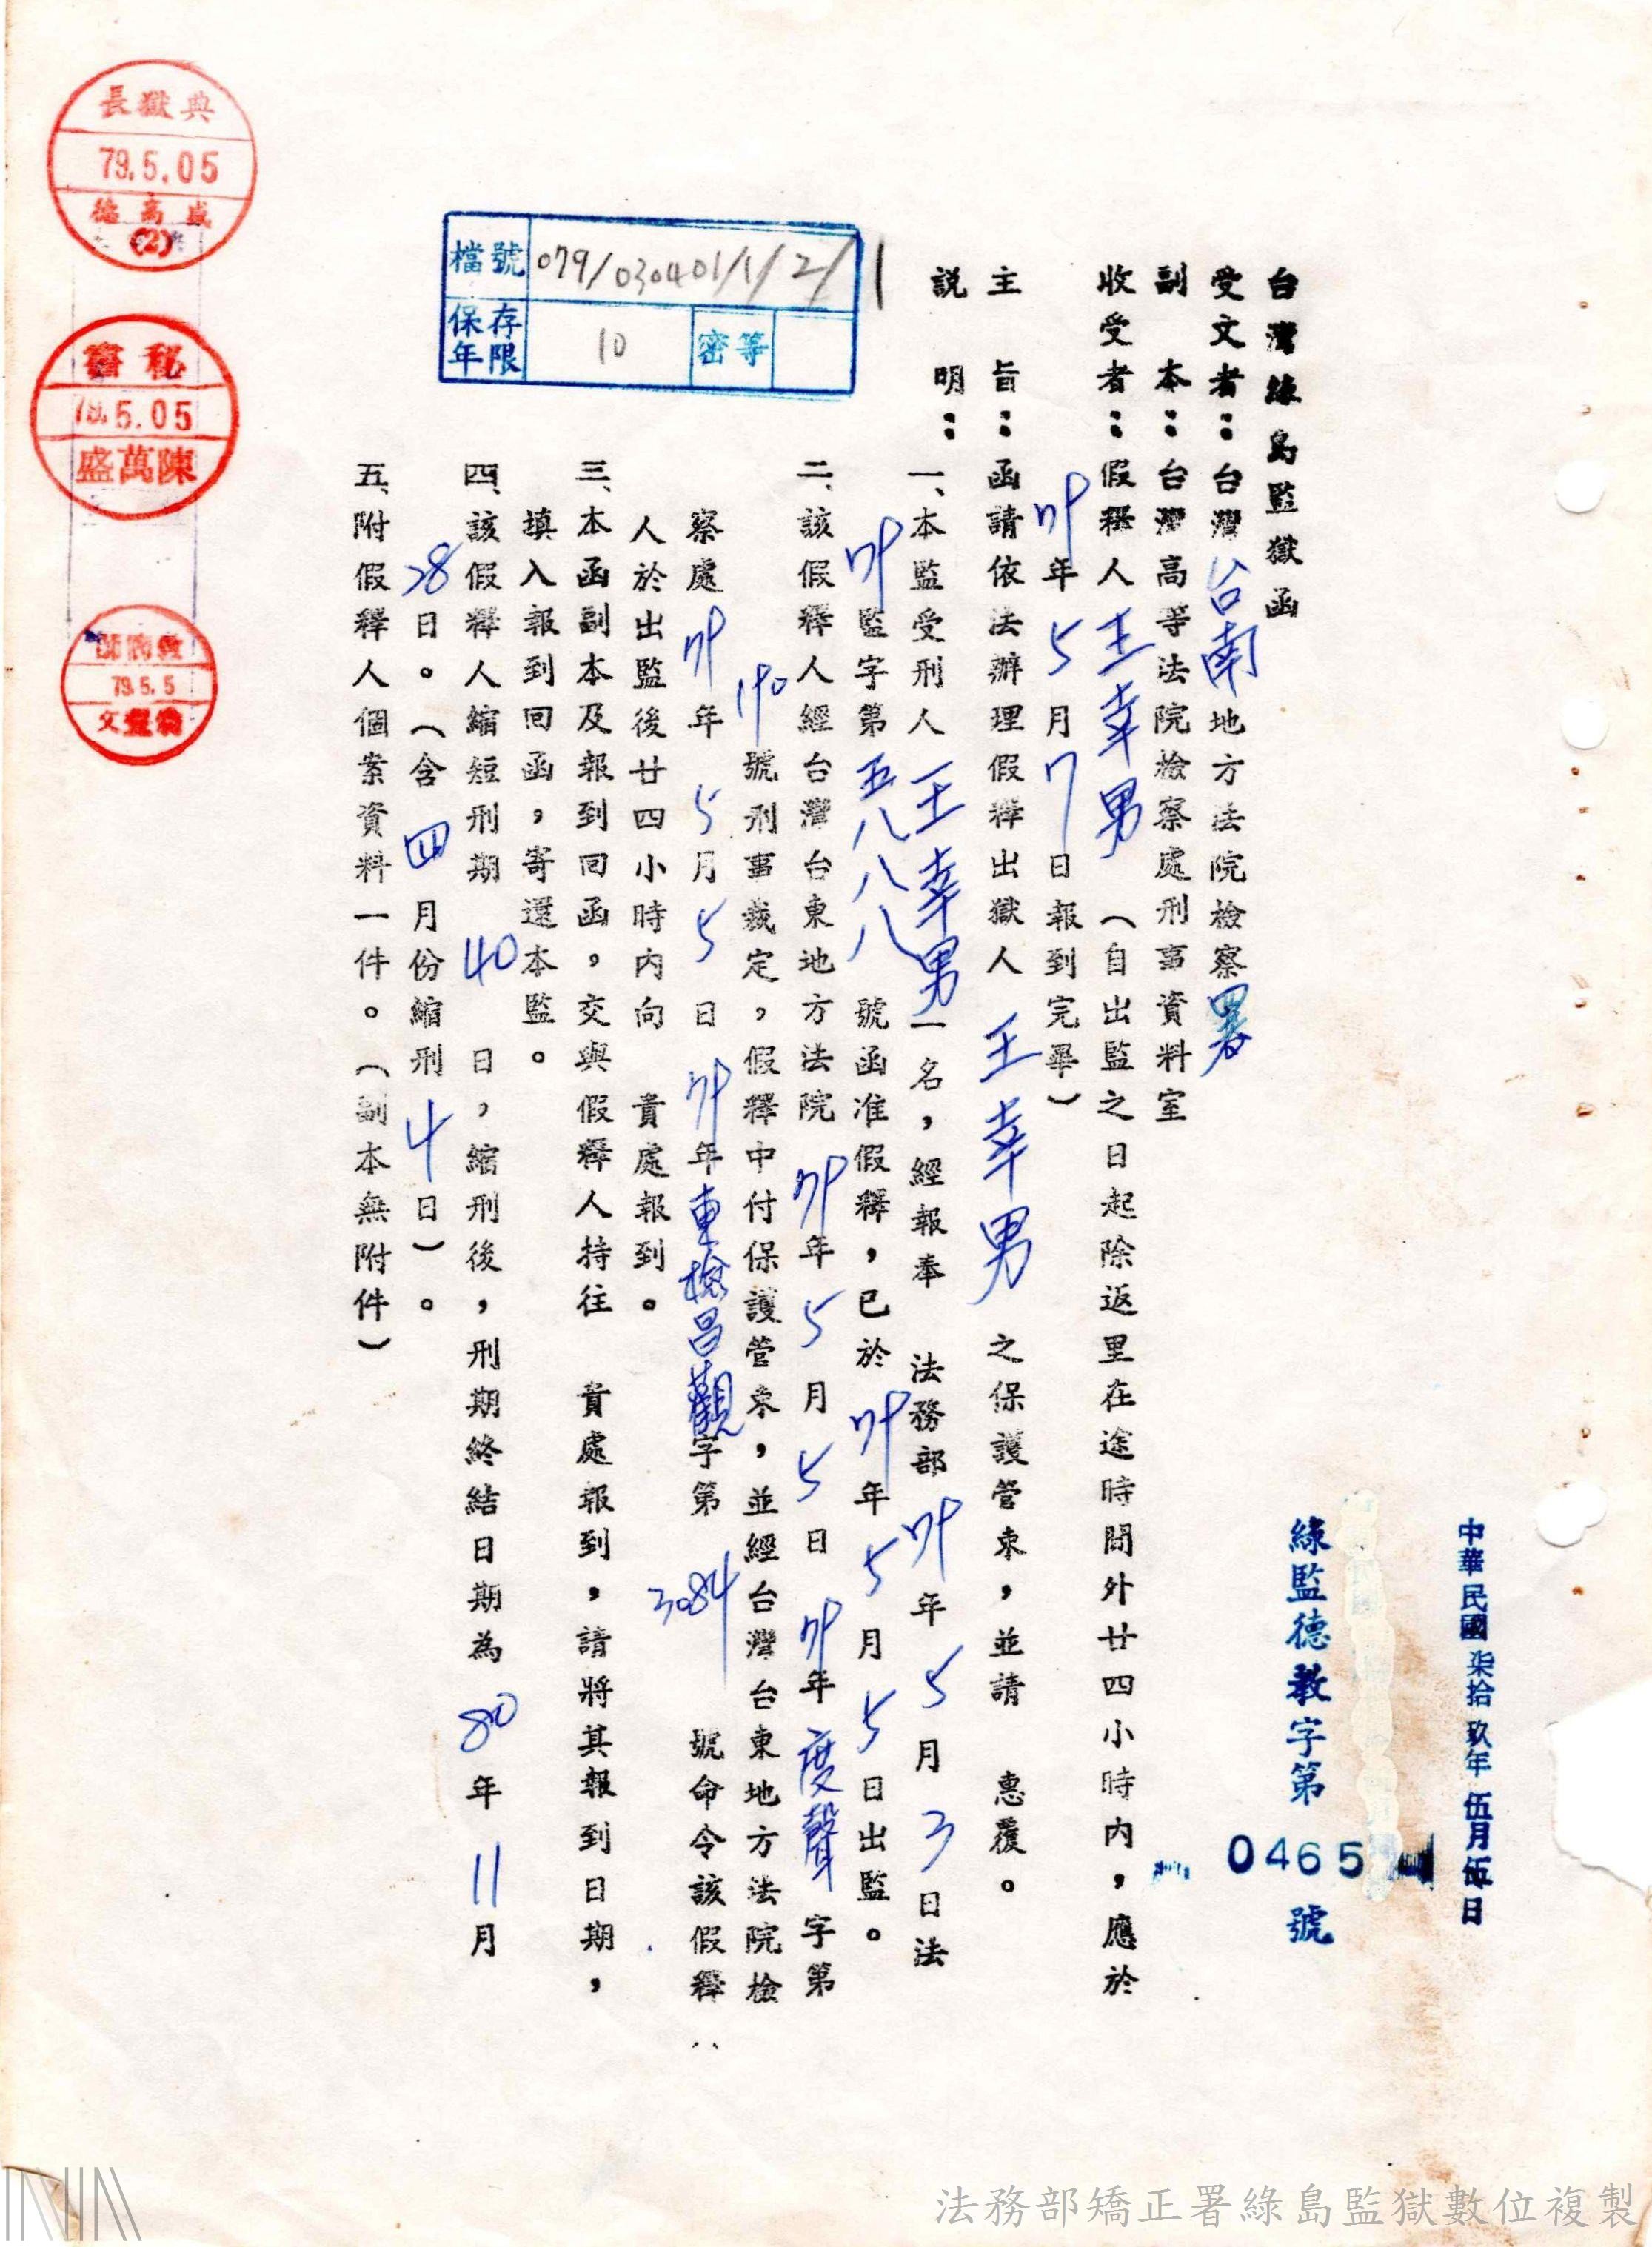 中華民國柒拾玖年伍月伍日
綠監德教字第0465號
台灣綠島監獄函
受文者：台灣台南地方法院檢察署
副本：台灣高等法院檢察處刑事資料室
收受者：假釋人王幸男（自出監之日起除返里在途時間外廿四小時內，應於
79年5月7日報到完畢）
主旨：函請依法辦理假釋出獄人王幸男之保護管束，並請惠覆。
說明：
一、本監受刑人王幸男一名，經報奉法務部79年5月3日法
79監字第五八八八號函准假釋，已於79年5月5日出監。
二、該假釋人經台灣台東地方法院79年5月5日79年度聲字第
190號刑事裁定，假釋中付保護管束，並經台灣台東地方法院檢
察處79年5月5日79年東檢昌觀字第3084號命令該假釋
人於出監後廿四小時內向貴處報到。
三、本函副本及報到回函，交與假釋人持往貴處報到，請將其報到日期，
填入報到回函，寄還本監。
四、該假釋人縮短刑期40日，縮刑後，刑期終結日期為80年11月
28日。（含四月份縮刑4日）。
五、附假釋人個案資料一件。（副本無附件）
檔號 079/030401/1/2/1
保存年限 10 密等
典獄長
79.5.05
盛高德
(2)
秘書
79.5.05
陳萬盛
教誨師
79.5.5
法務部矯正署綠島監獄數位複製